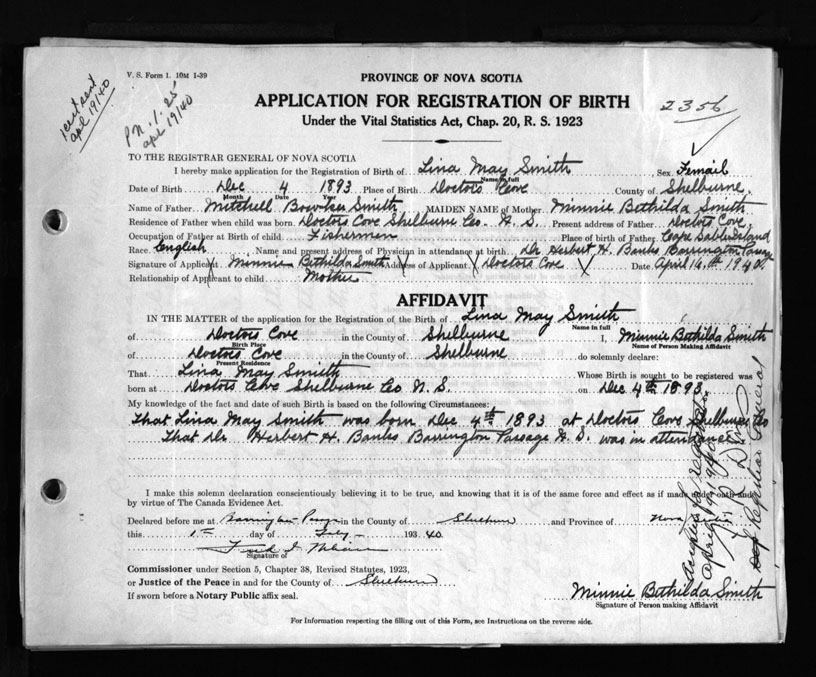 V. S. Form 1. 10M 1-39
1 cert sent
apl 19/40
P.N. 1.25
apl 19/40
PROVINCE OF NOVA SCOTIA
APPLICATION FOR REGISTRATION OF BIRTH
2356
Under the Vital Statistics Act, Chap. 20, R. S. 1923
TO THE REGISTRAR GENERAL OF NOVA SCOTIA
I hereby make application for the Registration of Birth of Lina May Smith Sex Femail
Name in full
Date of Birth Dec 4 1893 Place of Birth Doctors Cove County of Shelburne
Month Date Year
Name of Father Mitchell Smith MAIDEN NAME of Mother Minnie Bethilda Smith
Residence of Father when child was born Doctors Cove Shelburne Co. N. S. Present address of Father Doctors Cove
Occupation of Father at Birth of child Fishermen Place of birth of Father Cape Sable Island
Race English Name and present address of Physician in attendance at birth Dr Herbert H. Banks Barrington Passage
Signature of Applicant Minnie Bethilda Smith Address of Applicant Doctors Cove Date April 16th 1940
Relationship of Applicant to child Mother
AFFIDAVIT
IN THE MATTER of the application for the Registration of the Birth of Lina May Smith
Name in full
of Doctors Cove in the County of Shelburne I, Minnie Bethilda Smith
Birth Place Name of Person Making Affidavit
of Doctors Cove in the County of Shelburne do solemnly declare:
Present Residence
That Lina May Smith Whose Birth is sought to be registered was
born at Doctors Cove Shelburne Co N. S. on Dec 4th 1893
My knowledge of the fact and date of such Birth is based on the following Circumstances:
That Lina May Smith was born Dec 4th 1893 at Doctors Cove Shelburne Co
That Dr Herbert H. Banks Barrington Passage N. S. was in attendance
I make this solemn declaration conscientiously believing it to be true, and knowing that it is of the same force and effect as if made under oath and
by virtue of The Canada Evidence Act.
Declared before me at Barrington Passage in the County of Shelburne and Province of Nova
this 1st day of 1940
Signature of
Commissioner under Section 5, Chapter 38, Revised Statutes, 1923,
or Justice of the Peace in and for the County of Shelburne
If sworn before a Notary Public affix seal.
Minnie Bethilda Smith
Signature of Person making Affidavit
For Information respecting the filling out of this Form, see Instructions on the reverse side
Registrar General